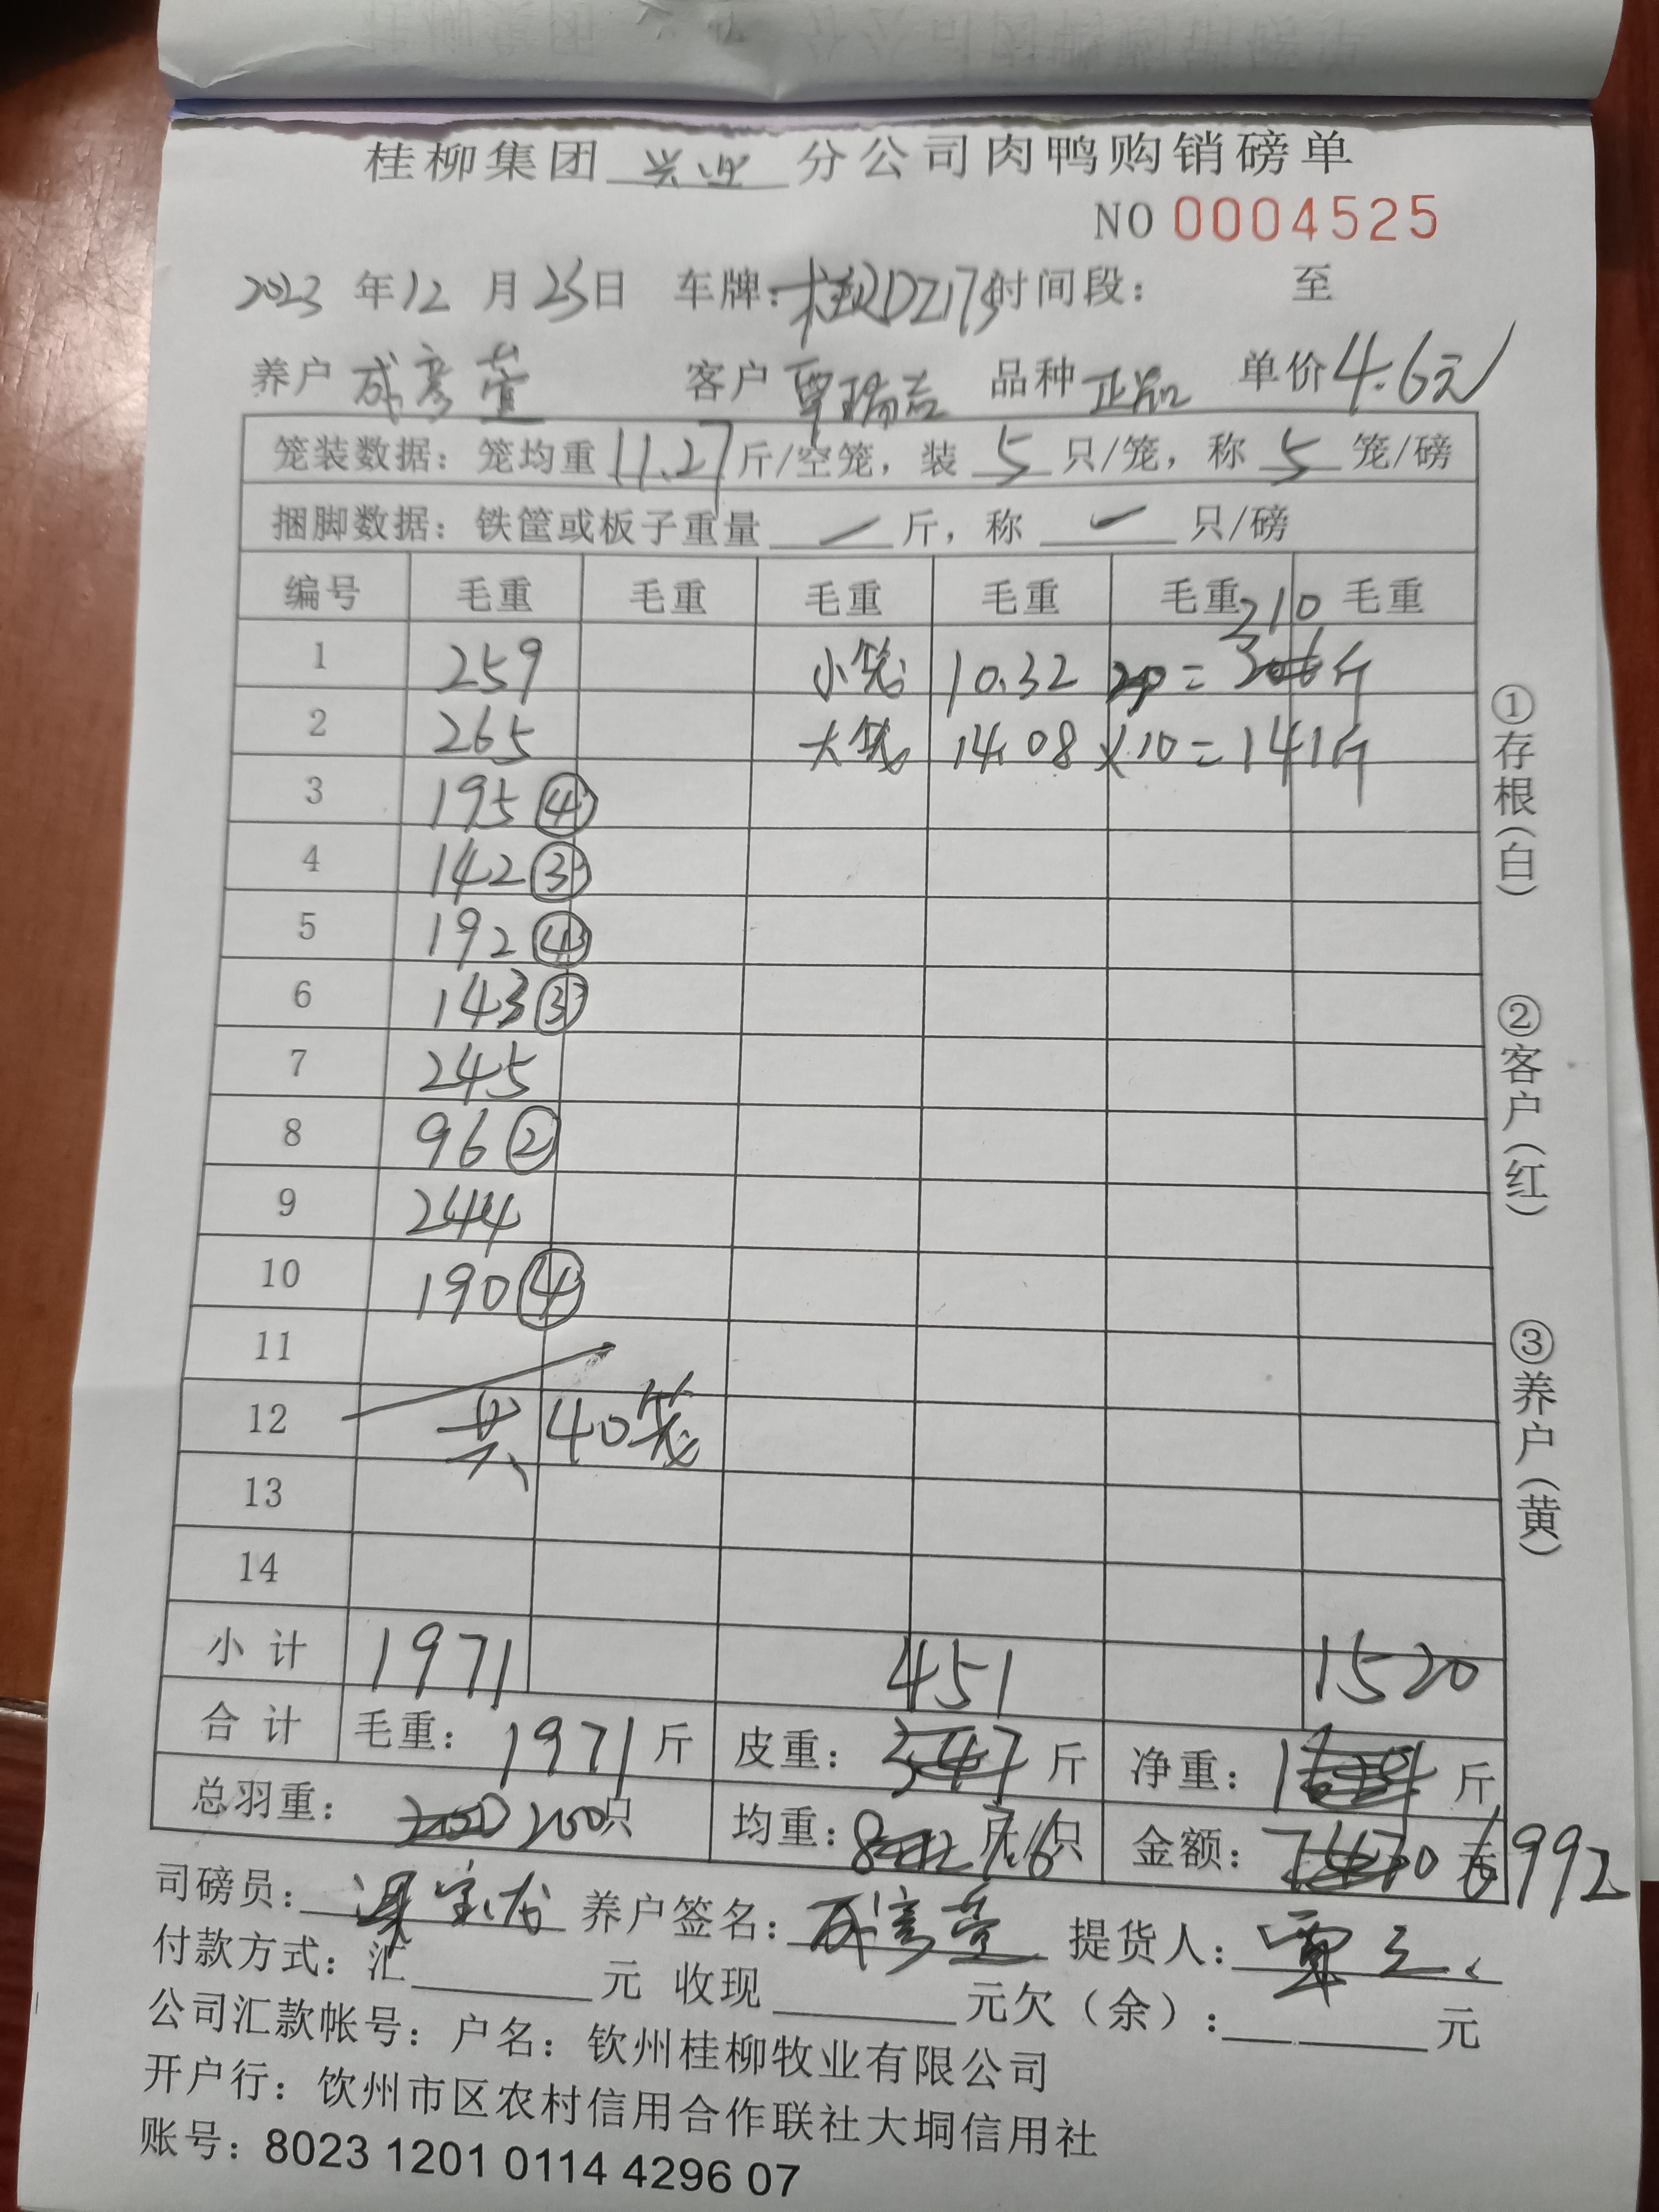 桂柳集团 兴业 分公司肉鸭购销磅单
NO 0004525
2023 年 12 月 25 日 车牌: 桂DZ173 时间段: 至
养户 成彦萱 客户 覃瑞吉 品种 正品 单价 4.6元
笼装数据: 笼均重 11.27 斤/空笼, 装 5 只/笼, 称 5 笼/磅
捆脚数据: 铁筐或板子重量 — 斤, 称 — 只/磅
编号 毛重 毛重 毛重 毛重 毛重 毛重
210
1 259 小笼 10.32 = 斤
2 265 大笼 14.08 ×10 = 141斤
3 195 ④
4 142 ③
5 192 ④
6 143 ③
7 245
8 96 ②
9 244
10 190 ④
11
12 共 40笼
13
14
小计 1971 451 1520
合计 毛重: 1971 斤 皮重: 斤 净重: 斤
总羽重: 200只 均重: 7.6 只 金额: 元 6992
司磅员: 养户签名: 成彦萱 提货人: 覃
付款方式: 汇 元 收现 元欠(余): 元
公司汇款帐号: 户名: 钦州桂柳牧业有限公司
开户行: 饮州市区农村信用合作联社大垌信用社
账号: 8023 1201 0114 4296 07
①存根(白)
②客户(红)
③养户(黄)